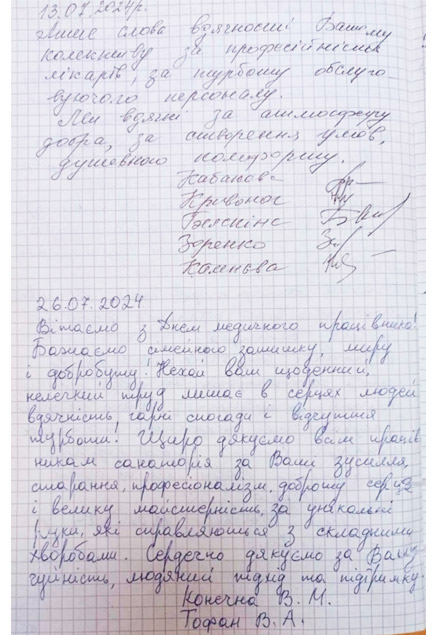 13.07.2024р.
Лише слова вдячності Вашому
колективу за професійність
лікарів, за турботу обслуго
вуючого персоналу.
Ми вдячні за атмосферу
добра, за створення умов,
душевного комфорту.
Кабанова
Кривонос
Зоренко
26.07.2024
Вітаємо з Днем медичного працівника!
Бажаємо сімейного затишку, миру
і добробуту! Нехай вам щоденний,
нелегкий труд лишає в серцях людей
вдячність, гарні спогади і відчуття
турботи! Щиро дякуємо всім праців
никам санаторія за Ваші зусилля,
старання, професіоналізм, доброту серця
і велику майстерність, за унікальні
руки, які справляються з складними
хворобами. Сердечно дякуємо за Вашу
чуйність, людяний підхід та підтримку.
Конечна В. М.
Тофан В. А.